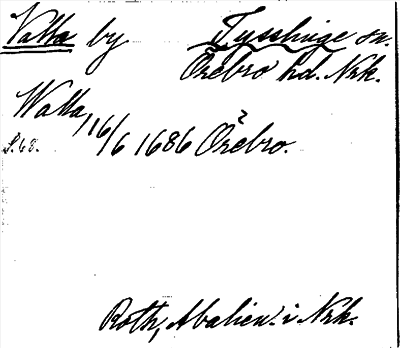 Valla by Tysslinge sn.
Örebro hd. Nrk.
Walla, 16/6 1686 Örebro.
S. 68.
Roth, Abalien. i Nrk.